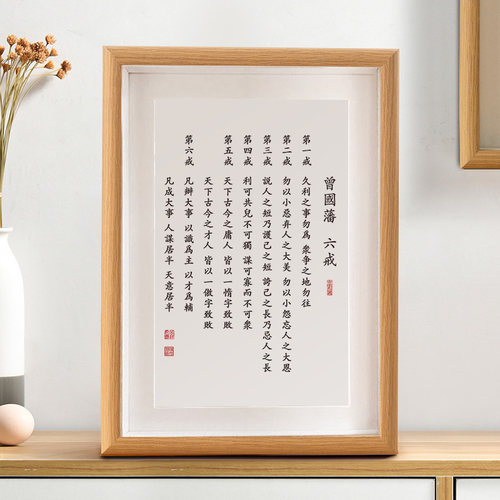 曾國藩 六戒
第一戒 久利之事勿為 衆爭之地勿往
第二戒 勿以小惡弃人之大美 勿以小怨忘人之大恩
第三戒 說人之短乃護己之短 誇己之長乃忌人之長
第四戒 利可共而不可獨 謀可寡而不可衆
第五戒 天下古今之庸人 皆以一惰字致敗
天下古今之才人 皆以一傲字致敗
第六戒 凡辦大事 以識為主 以才為輔
凡成大事 人謀居半 天意居半